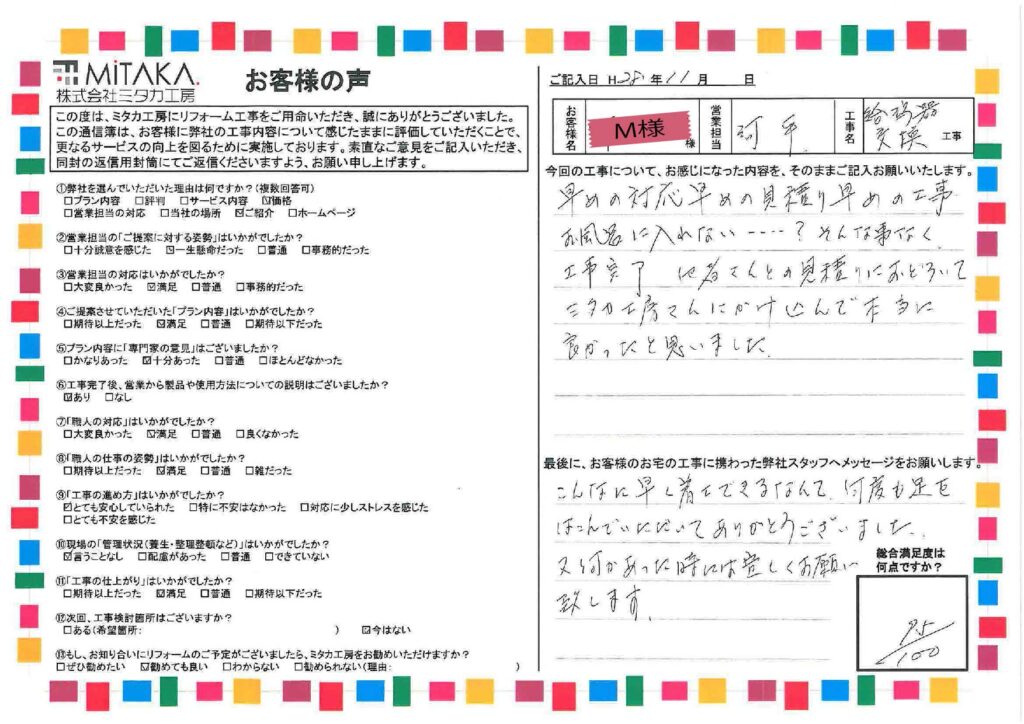 MiTAKA.
株式会社ミタカ工房
お客様の声
この度は、ミタカ工房にリフォーム工事をご用命いただき、誠にありがとうございました。
この通信簿は、お客様に弊社の工事内容について感じたままに評価していただくことで、
更なるサービスの向上を図るために実施しております。素直なご意見をご記入いただき、
同封の返信用封筒にてご返信くださいますよう、お願い申し上げます。
①弊社を選んでいただいた理由は何ですか?(複数回答可)
□プラン内容 □評判 □サービス内容 ☑価格
□営業担当の対応 □当社の場所 ☑ご紹介 □ホームページ
②営業担当の「ご提案に対する姿勢」はいかがでしたか?
□十分誠意を感じた ☑一生懸命だった □普通 □事務的だった
③営業担当の対応はいかがでしたか?
□大変良かった ☑満足 □普通 □事務的だった
④ご提案させていただいた「プラン内容」はいかがでしたか?
□期待以上だった ☑満足 □普通 □期待以下だった
⑤プラン内容に「専門家の意見」はございましたか?
□かなりあった ☑十分あった □普通 □ほとんどなかった
⑥工事完了後、営業から製品や使用方法についての説明はございましたか?
☑あり □なし
⑦「職人の対応」はいかがでしたか?
□大変良かった ☑満足 □普通 □良くなかった
⑧「職人の仕事の姿勢」はいかがでしたか?
□期待以上だった ☑満足 □普通 □雑だった
⑨「工事の進め方」はいかがでしたか?
☑とても安心していられた □特に不安はなかった □対応に少しストレスを感じた
□とても不安を感じた
⑩現場の「管理状況(養生・整理整頓など)」はいかがでしたか?
☑言うことなし □配慮があった □普通 □できていない
⑪「工事の仕上がり」はいかがでしたか?
□期待以上だった ☑満足 □普通 □期待以下だった
⑫次回、工事検討箇所はございますか?
□ある(希望箇所: ) ☑今はない
⑬もし、お知り合いにリフォームのご予定がございましたら、ミタカ工房をお勧めいただけますか?
□ぜひ勧めたい ☑勧めても良い □わからない □勧められない(理由: )
ご記入日 H 28 年 11 月 日
お客様名 M様 様 営業担当 河手 工事名 給湯器交換 工事
今回の工事について、お感じになった内容を、そのままご記入お願いいたします。
早めの対応早めの見積り早めの工事
お風呂に入れない----? そんな事なく
工事完了 他者さんとの見積りにおどろいて
ミタカ工房さんにかけ込んで本当に
良かったと思いました.
最後に、お客様のお宅の工事に携わった弊社スタッフへメッセージをお願いします。
こんなに早く着工できるなんて、何度も足を
はこんでいただいてありがとうございました.
又何かあった時には宜しくお願い
致します.
総合満足度は
何点ですか?
95/100